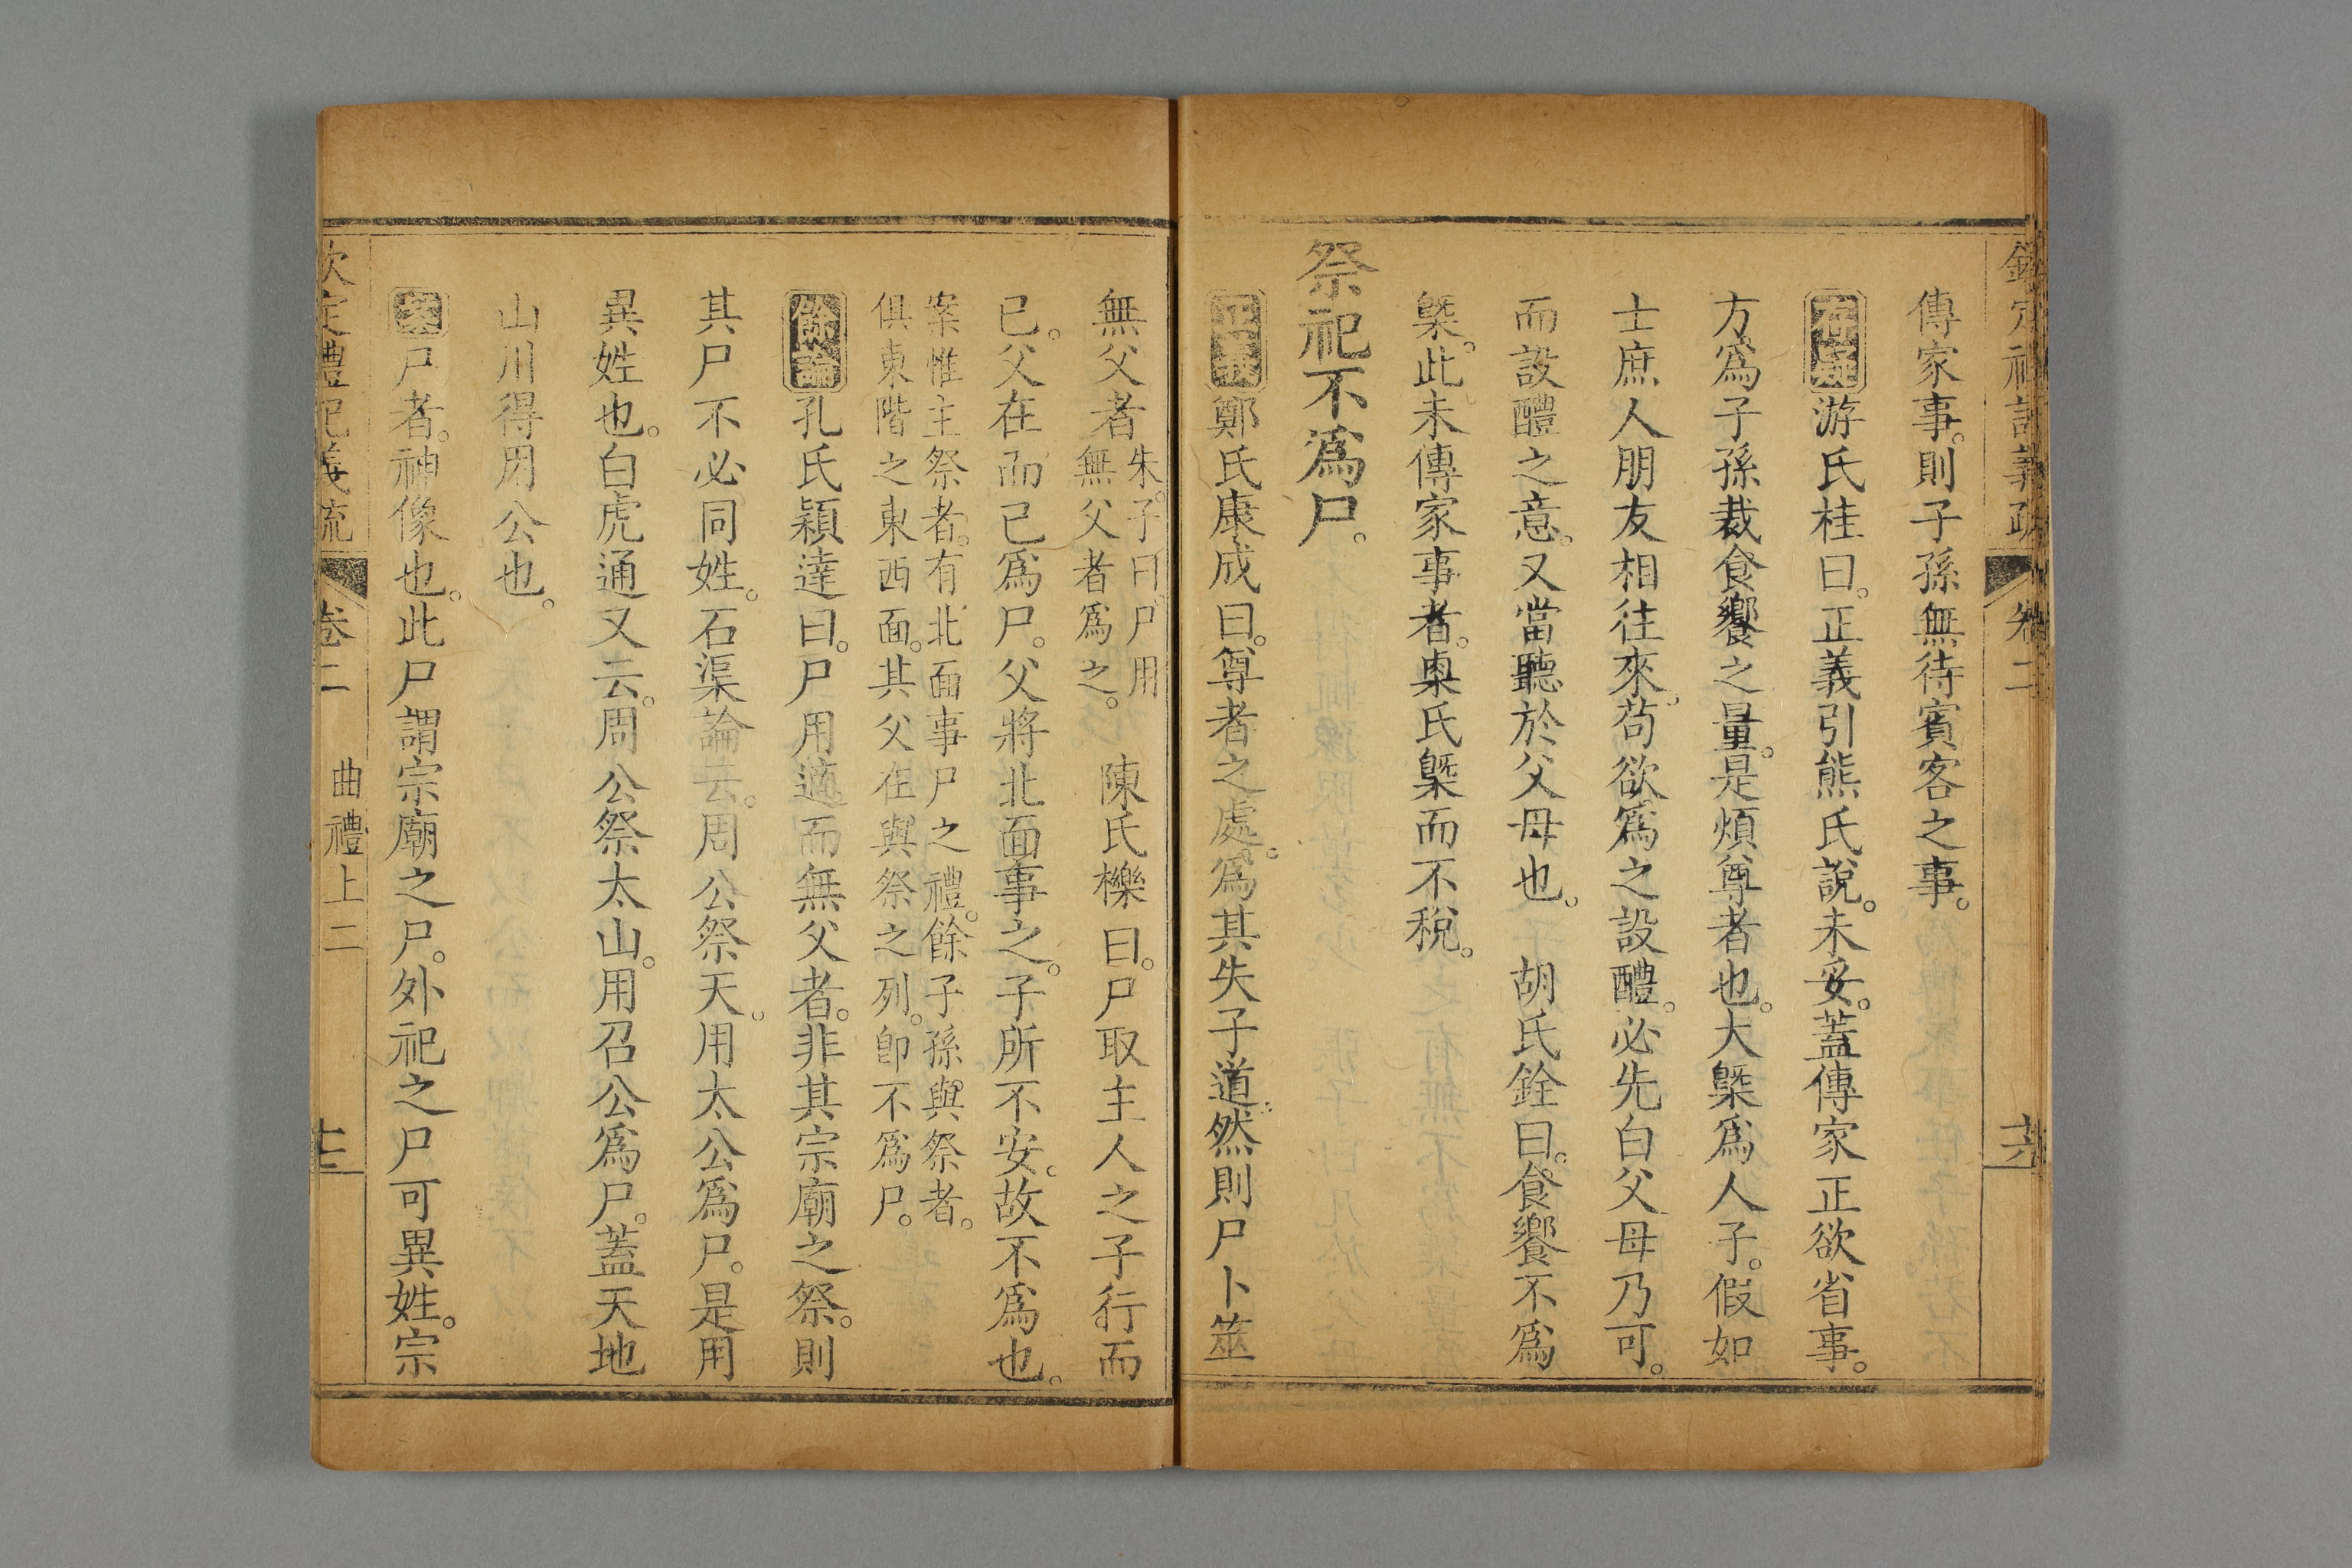 傳家事。則子孫無待賓客之事。
存疑游氏桂曰。正義引熊氏說。未妥。蓋傳家正欲省事。
方爲子孫裁食饗之量。是煩尊者也。大槩爲人子。假如
士庶人朋友相往來。苟欲爲之設醴。必先白父母乃可。
而設醴之意。又當聽於父母也。　胡氏銓曰。食饗不爲
槩。此未傳家事者。㮚氏槩而不稅。
祭祀不爲尸。
正義鄭氏康成曰。尊者之處。爲其失子道。然則尸卜筮
無父者
朱子曰。尸用
無父者爲之。
陳氏櫟曰。尸取主人之子行而
已。父在而已爲尸。父將北面事之。子所不安。故不爲也。
案惟主祭者。有北面事尸之禮。餘子孫與祭者。
俱東階之東西面。其父在與祭之列。卽不爲尸。
餘論孔氏穎達曰。尸用適而無父者。非其宗廟之祭。則
其尸不必同姓。石渠論云。周公祭天。用太公爲尸。是用
異姓也。白虎通又云。周公祭太山。用召公爲尸。蓋天地
山川得用公也。
案尸者。神像也。此尸謂宗廟之尸。外祀之尸可異姓。宗
欽定禮記義疏　卷二　曲禮上二